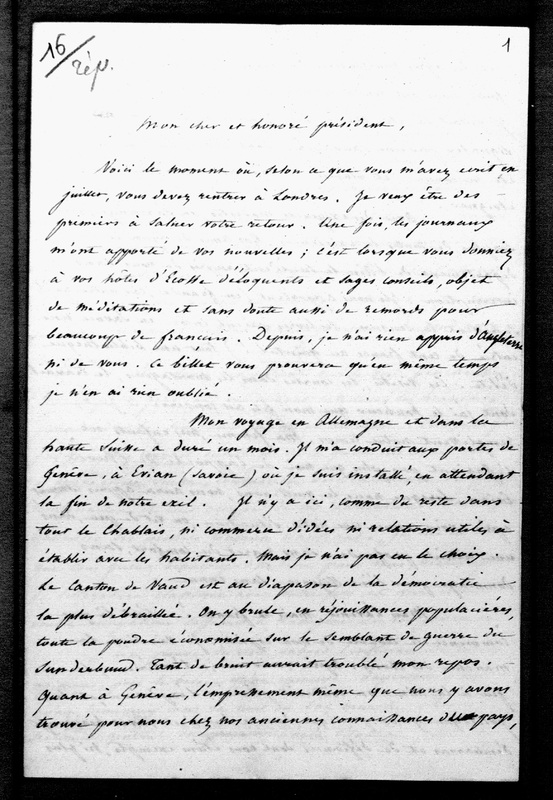 16
rép.
1
Mon cher et honoré président,
Voici le moment où, selon ce que vous m'avez écrit en
juillet, vous devez rentrer à Londres. Je veux être des
premiers à saluer votre retour. Une fois, les journaux
m'ont apporté de vos nouvelles; c'est lorsque vous donniez
à vos hôtes d'Ecosse d'éloquents et sages conseils, objet
de méditations et sans doute aussi de remords pour
beaucoup de francais. Depuis, je n'ai rien appris d'Angleterre
ni de vous. Ce billet vous prouvera qu'en même temps
je n'en ai rien oublié.
Mon voyage en Allemagne et dans la
haute Suisse a duré un mois. Il m'a conduit aux portes de
Genève, à Evian (Savoie) où je suis installé en attendant
la fin de notre exil. Il n'y a ici, comme du reste dans
tout le Chablais, ni commerce d'idées ni relations utiles à
établir avec les habitants. Mais je n'ai pas eu le choix.
Le Canton de Vaud est au diapason de la démocratie
la plus débraillée. On y brule, en réjouissances populacières,
toute la poudre économisée sur le semblant de guerre du
Sunderbund. Tant de bruit aurait troublé mon repos.
Quant à Genève, l'empressement même que nous y avons
trouvé pour nous chez nos anciennes connaissances du pays,